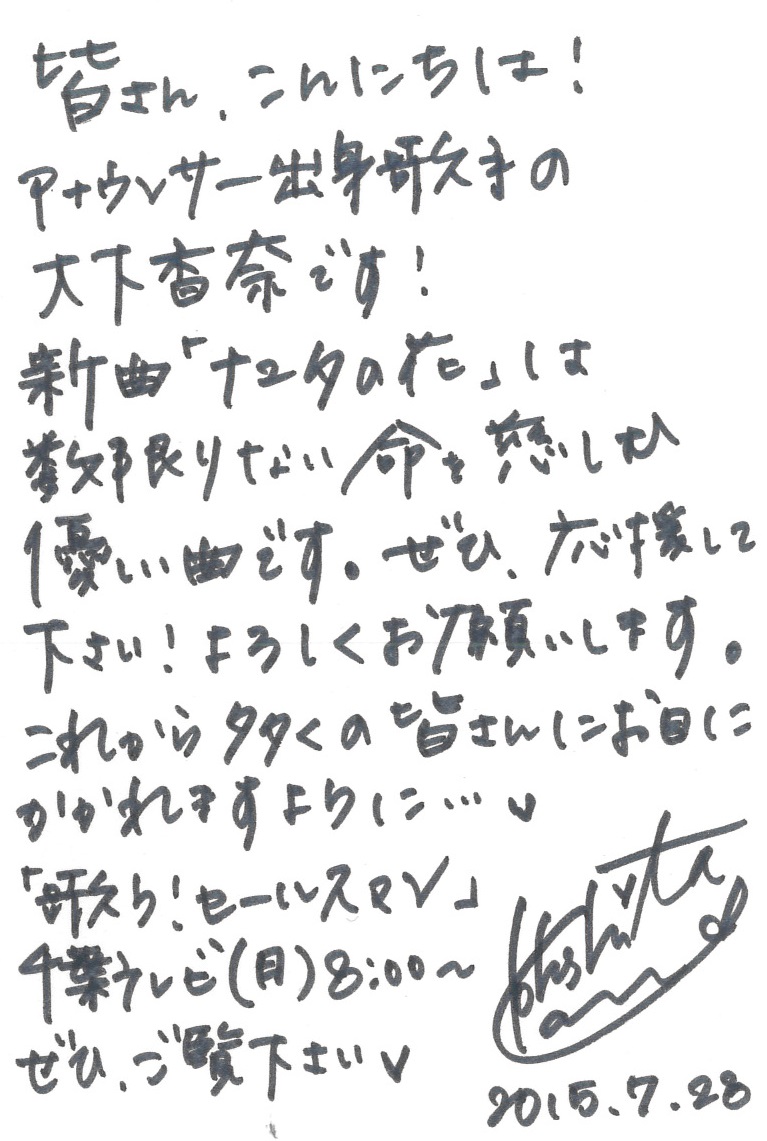 皆さん、こんにちは!
アナウンサー出身歌手の
大下香奈です!
新曲「ナユタの花」は
数限りない命を慈しむ
優しい曲です。ぜひ、応援して
下さい!よろしくお願いします。
これから多くの皆さんにお目に
かかれますように…♥
「歌う!セールスマン」
千葉テレビ(月)8:00〜
ぜひ、ご覧下さい♥
Ohshita
Kana
2015.7.28